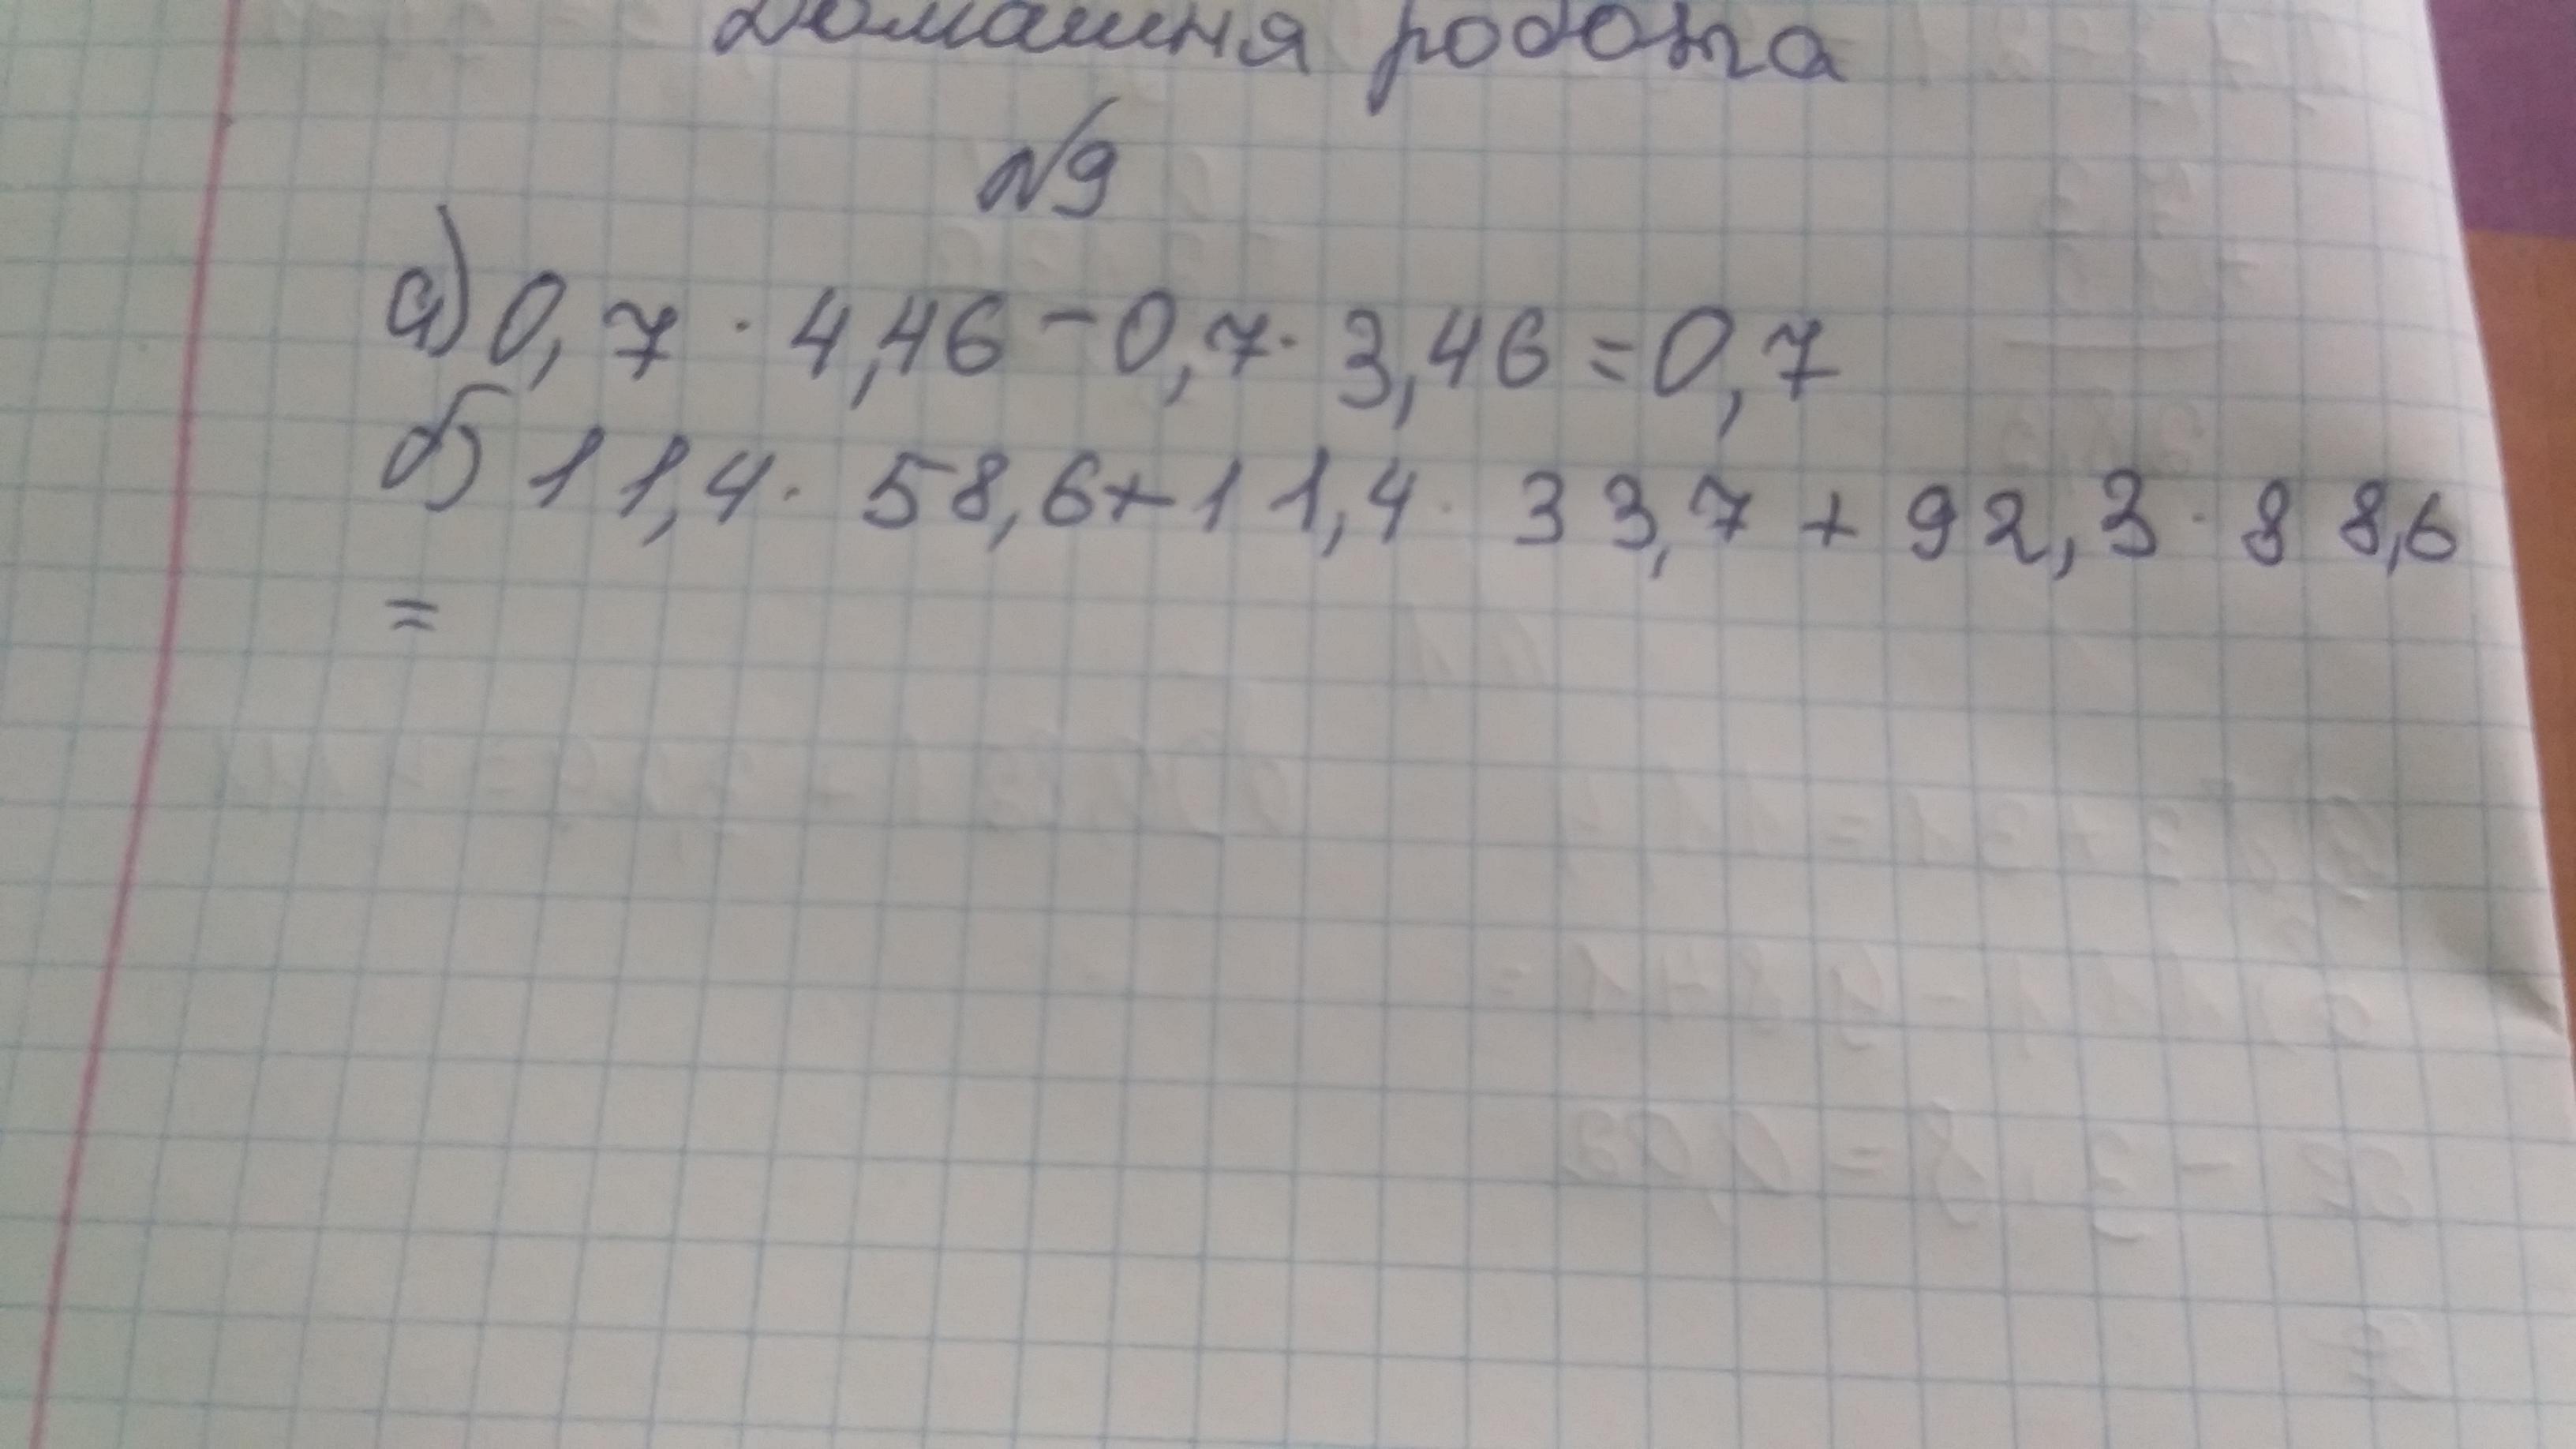 Домашня робота
№9
а) 0,7 · 4,46 - 0,7 · 3,46 = 0,7
б) 11,4 · 58,6 + 11,4 · 33,7 + 92,3 · 88,6
=